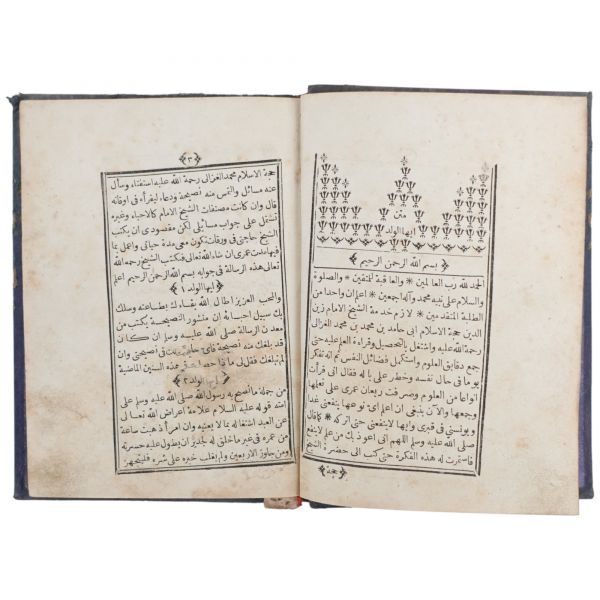 متن
ايها الولد
بسم الله الرحمن الرحيم
الحمد لله رب العالمين * والعاقبة للمتقين * والصلوة
والسلام على نبيه محمد وآله اجمعين * اعلم ان واحدا من
الطلبة المتقدمين * لازم خدمة الشيخ الامام زين
الدين حجة الاسلام ابى حامد بن محمد بن محمد الغزالى
رحمة الله عليه واشتغل بالتحصيل وقراءة العلم عليه حتى
جمع دقايق العلوم واستكمل فضائل النفس ثم انه تفكر
يوما فى حال نفسه وخطر على باله فقال انى قرأت
انواعا من العلوم وصرفت ريعان عمرى على تعلمها
وجمعها والآن ينبغى ان اعلم اى نوعها ينفعنى غدا
ويونسنى فى قبرى وايها لاينفعنى حتى اتركه * كما قال
صلى الله عليه وسلم اللهم انى اعوذ بك من علم لاينفع
فاستمرت له هذه الفكرة حتى كتب الى حضرة الشيخ
حجة
٣
حجة الاسلام محمد الغزالى رحمة الله عليه استفتاء وسأل
عنه مسائل والتمس منه نصيحة ودعاء ليقرأه فى اوقاته
قال وان كانت مصنفات الشيخ الامام كالاحياء وغيره
تشتمل على جواب مسائلى لكن مقصودى ان يكتب
الشيخ حاجتى فى ورقات تكون معى مدة حياتى واعمل بما
فيها مدت عمرى ان شاء الله تعالى فكتب الشيخ رحمه الله
تعالى هذه الرسالة فى جوابه بسم الله الرحمن الرحيم اعلم
ايها الولد ١
والمحب العزيز اطال الله بقاءك بطاعته وسلك
بك سبيل احبائه ان منشور النصيحة يكتب من
معدن الرسالة صلى الله عليه وسلم ان كان
قد بلغك منه نصيحة فاى حاجة لك فى نصيحتى وان
لم تبلغك فقل لى ما ذا حصلت فى هذه السنين الماضية
ايها الولد ٢
من جملة ما نصح به رسول الله صلى الله عليه وسلم على
امته قوله عليه السلام علامة اعراض الله تعالى
عن العبد اشتغاله بما لا يعنيه وان امرأ ذهبت ساعة
من عمره فى غير ما خلق له لجدير ان يطول عليه حسرته
ومن جاوز الاربعين ولم يغلب خيره على شره فليتجهز